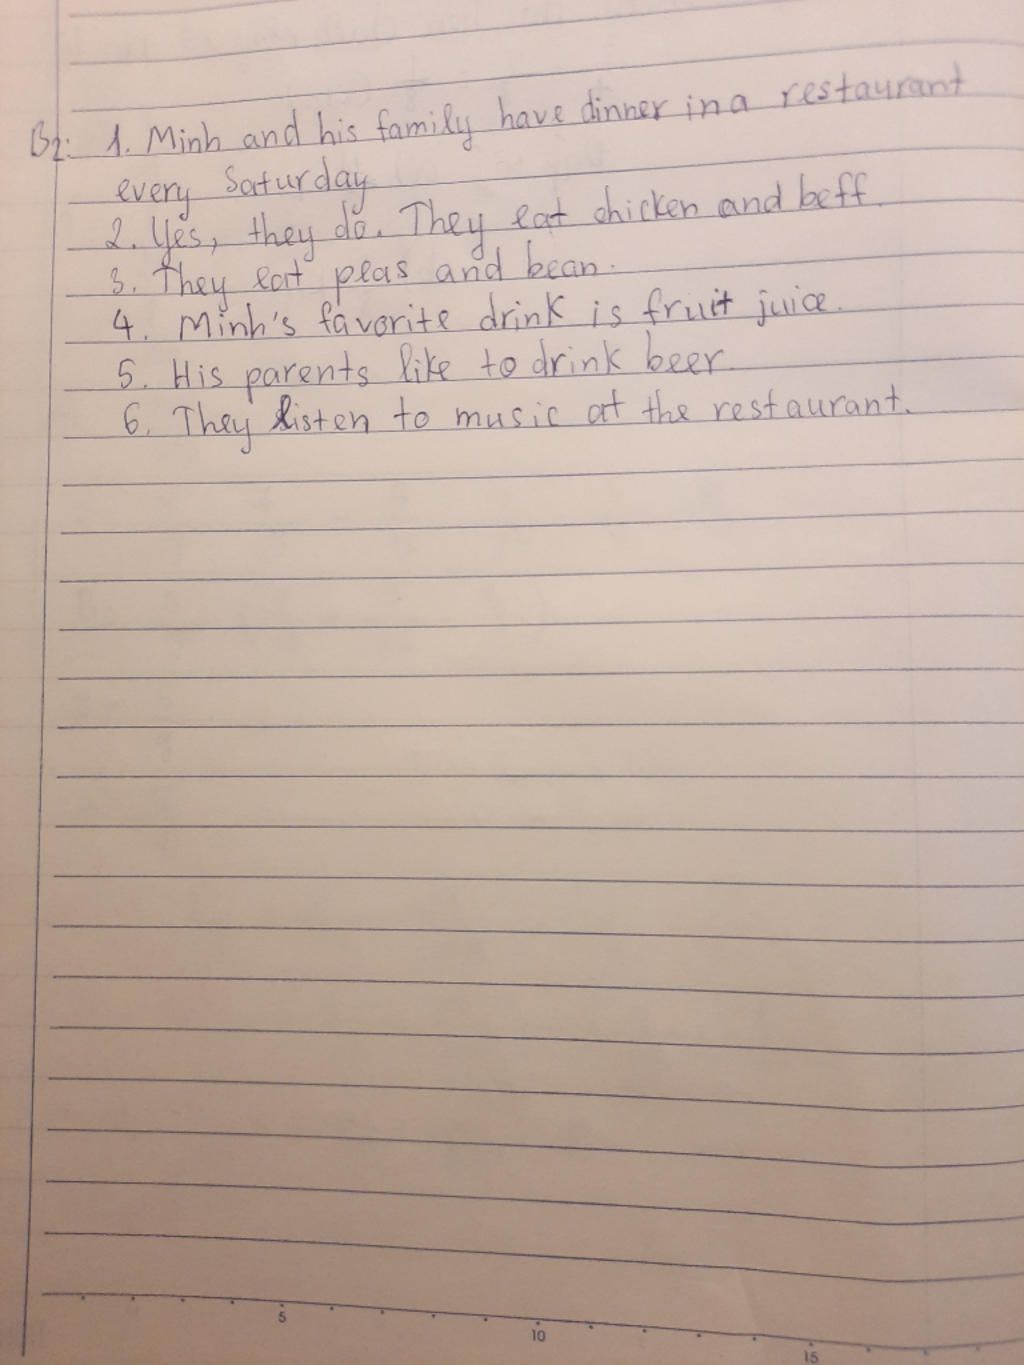 B2: 1. Minh and his family have dinner in a restaurant
every Saturday
2. Yes, they do. They eat chicken and beff.
3. They eat peas and bean.
4. Minh's favorite drink is fruit juice.
5. His parents like to drink beer.
6. They listen to music at the restaurant.
5 10 15